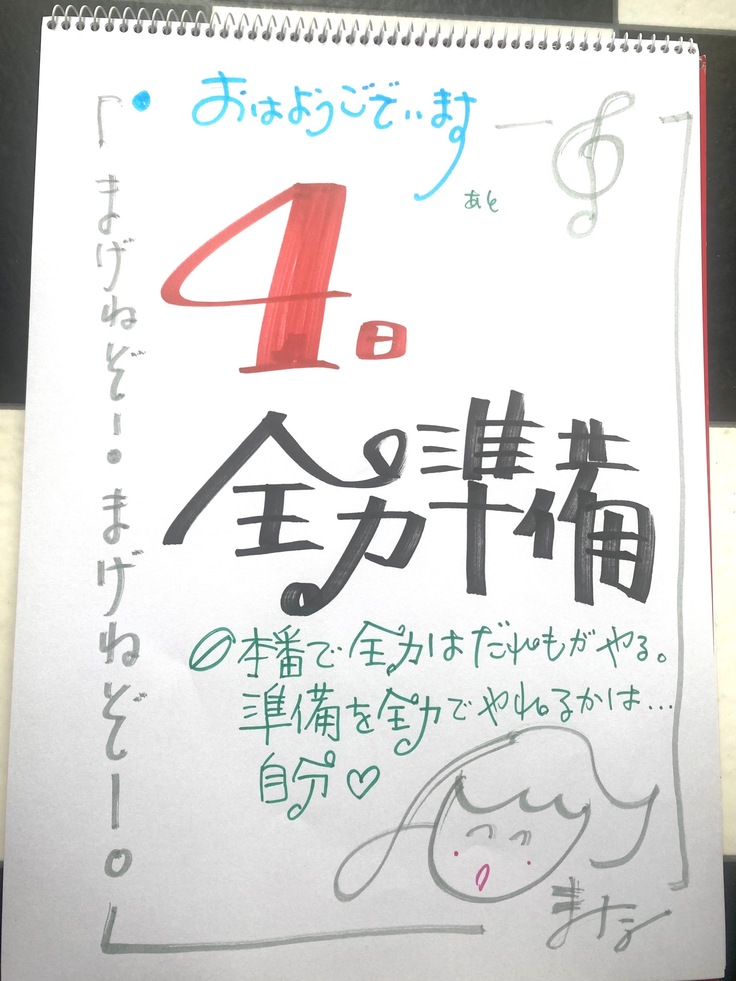 おはようございます
あと
4日
全力準備
本番で全力はだれもがやる。
準備を全力でやれるかは…
自分♡
「まげねぞー・まげねぞー。